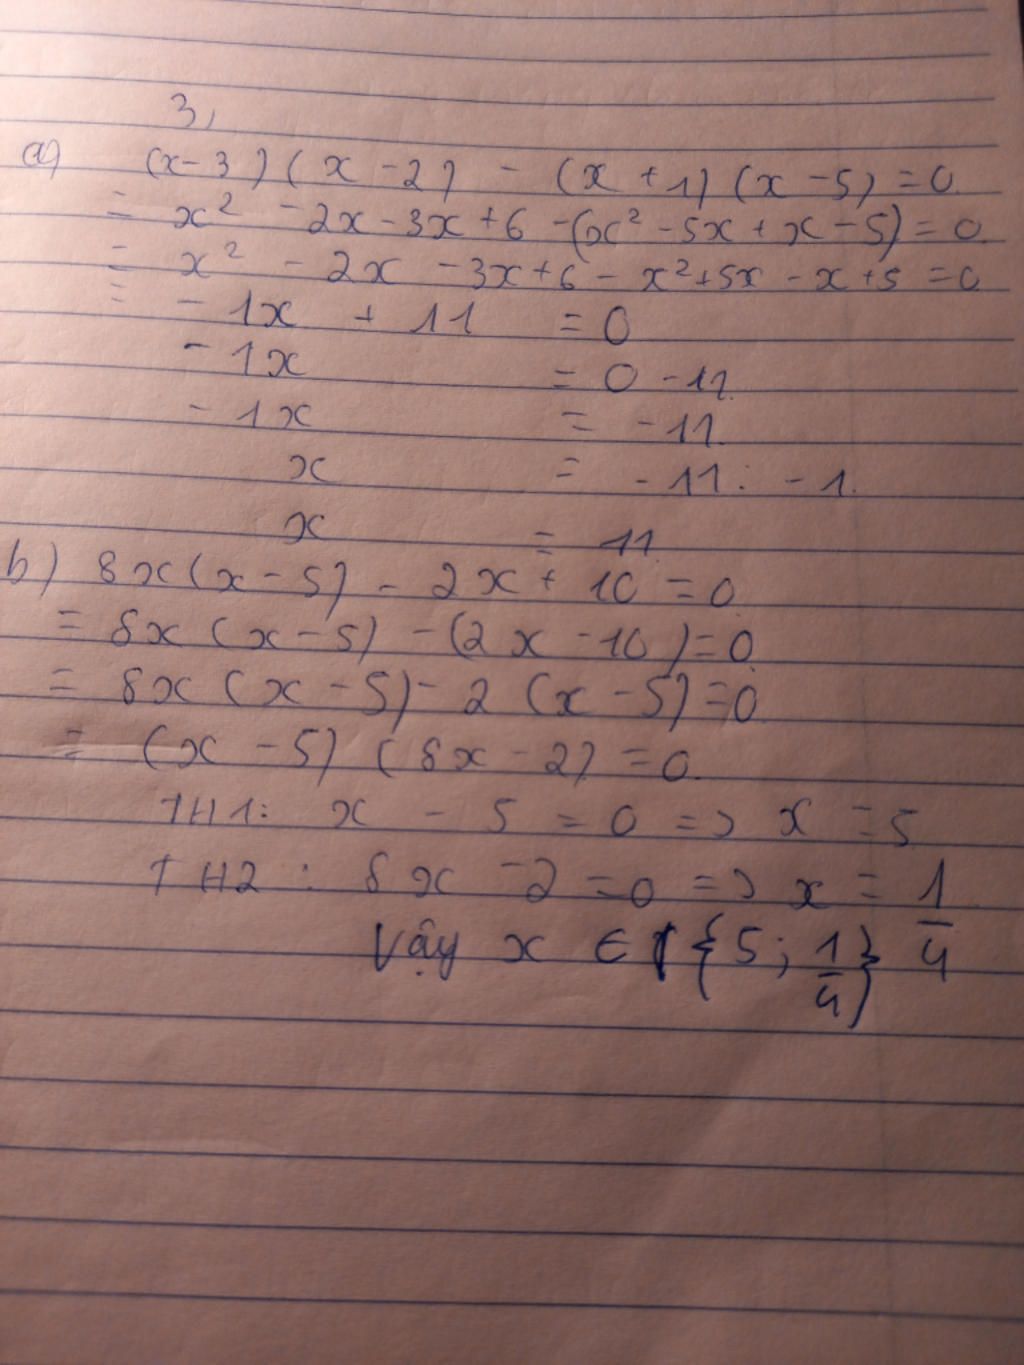 3,
a) (x-3)(x-2) - (x+1)(x-5)=0
= x² -2x-3x+6 -(x²-5x+x-5)=0
= x² -2x -3x+6-x²+5x-x+5=0
= -1x + 11 = 0
-1x = 0-11
-1x = -11
x = -11: -1
x = 11
b) 8x(x-5)-2x+10=0
= 8x(x-5)-(2x-10)=0
= 8x(x-5)-2(x-5)=0
= (x-5)(8x-2)=0
TH1: x-5=0=> x=5
TH2: 8x-2=0=> x=1/4
Vậy x ∈ {5; 1/4}